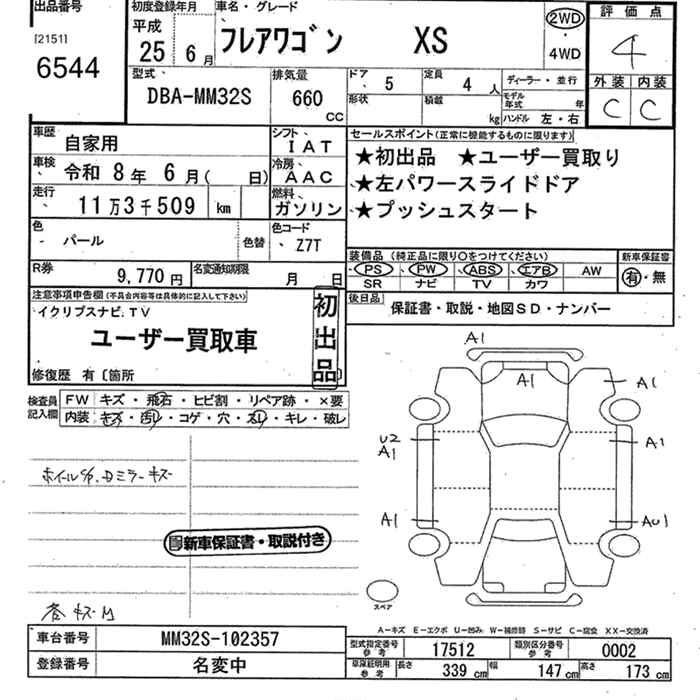 出品番号 初度登録年月 車名・グレード 評価点
[2151] 平成 2WD
6544 25 6月 フレアワゴン XS 4WD 4
型式 排気量 ドア 5 定員 4人 ディーラー・並行 外装 内装
DBA-MM32S 660 CC 形状 積載 kg モデル年式 年 C C
ハンドル 左・右
車歴 自家用 シフト IAT セールスポイント(正常に機能するものに限ります)
車検 令和 8年 6月( 日) 冷房 AAC ★初出品 ★ユーザー買取り
走行 11万3千509 km 燃料 ガソリン ★左パワースライドドア
★プッシュスタート
色 パール 色替 色コード Z7T
装備品(純正品に限り○をつけてください) 新車保証書
R券 9,770円 名変通知期限 月 日 PS PW ABS エアB AW 有・無
SR ナビ TV カワ
注意事項申告欄(不具合内容等は具体的に記入して下さい) 初出品 後日品 保証書・取説・地図SD・ナンバー
イクリプスナビ、TV
ユーザー買取車
修復歴 有〔箇所 〕
検査員記入欄 FW キズ・飛石・ヒビ割・リペア跡・×要
内装 キズ・汚レ・コゲ・穴・スレ・キレ・破レ
A1
A1 A1
U2 A1 A1
ホイルS/. Dミラーキズ
A1 AU1
新車保証書・取説付き
スペア
A−キズ E−エクボ U−凹み W−補修跡 S−サビ C−腐食 XX−交換済
車台番号 MM32S-102357 型式指定番号 参考 17512 類別区分番号 参考 0002
登録番号 名変中 車庫証明用 参考 長さ 339 cm 幅 147 cm 高さ 173 cm